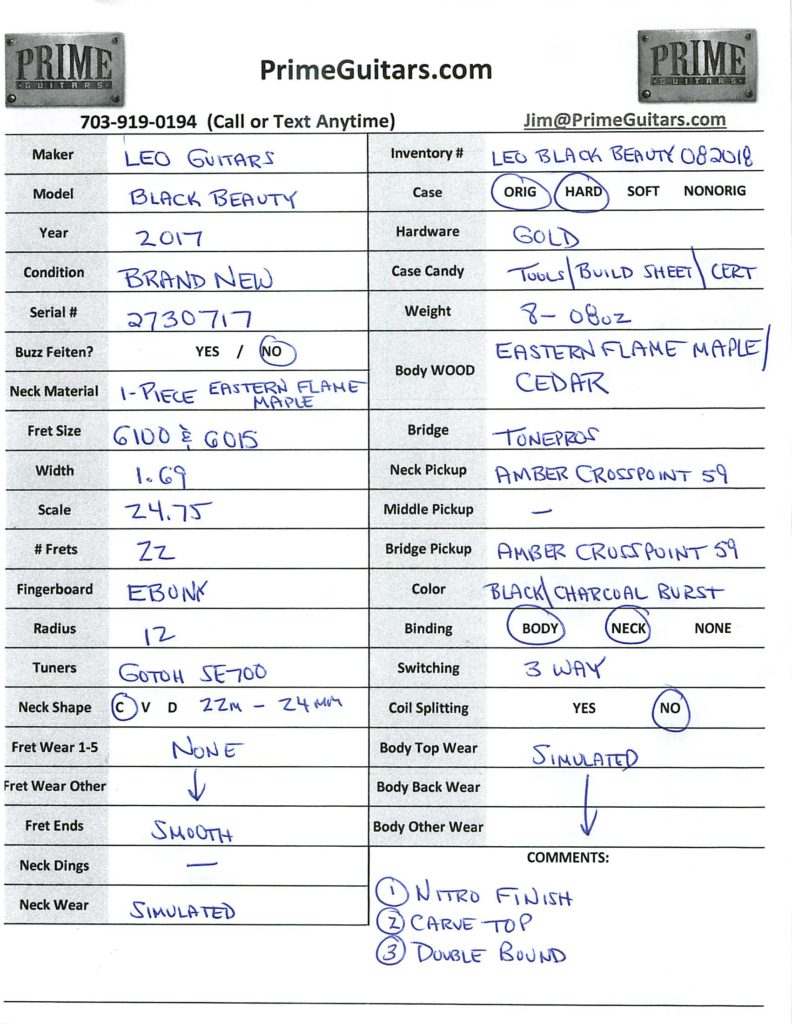 PRIME
GUITARS
PrimeGuitars.com
PRIME
GUITARS
703-919-0194 (Call or Text Anytime)
Jim@PrimeGuitars.com
Maker LEO GUITARS
Model BLACK BEAUTY
Year 2017
Condition BRAND NEW
Serial # 2730717
Buzz Feiten? YES / NO
Neck Material 1-PIECE EASTERN FLAME
MAPLE
Fret Size 6100 & 6015
Width 1.69
Scale 24.75
# Frets 22
Fingerboard EBONY
Radius 12
Tuners GOTOH SE700
Neck Shape C V D 22M - 24MM
Fret Wear 1-5 NONE
Fret Wear Other ↓
Fret Ends SMOOTH
Neck Dings —
Neck Wear SIMULATED
Inventory # LEO BLACK BEAUTY 082018
Case ORIG HARD SOFT NONORIG
Hardware GOLD
Case Candy TOOLS/BUILD SHEET/CERT
Weight 8-08oz
Body WOOD EASTERN FLAME MAPLE/
CEDAR
Bridge TONEPROS
Neck Pickup AMBER CROSSPOINT 59
Middle Pickup —
Bridge Pickup AMBER CROSSPOINT 59
Color BLACK\CHARCOAL BURST
Binding BODY NECK NONE
Switching 3 WAY
Coil Splitting YES NO
Body Top Wear SIMULATED
Body Back Wear
Body Other Wear ↓
COMMENTS:
① NITRO FINISH
② CARVE TOP
③ DOUBLE BOUND